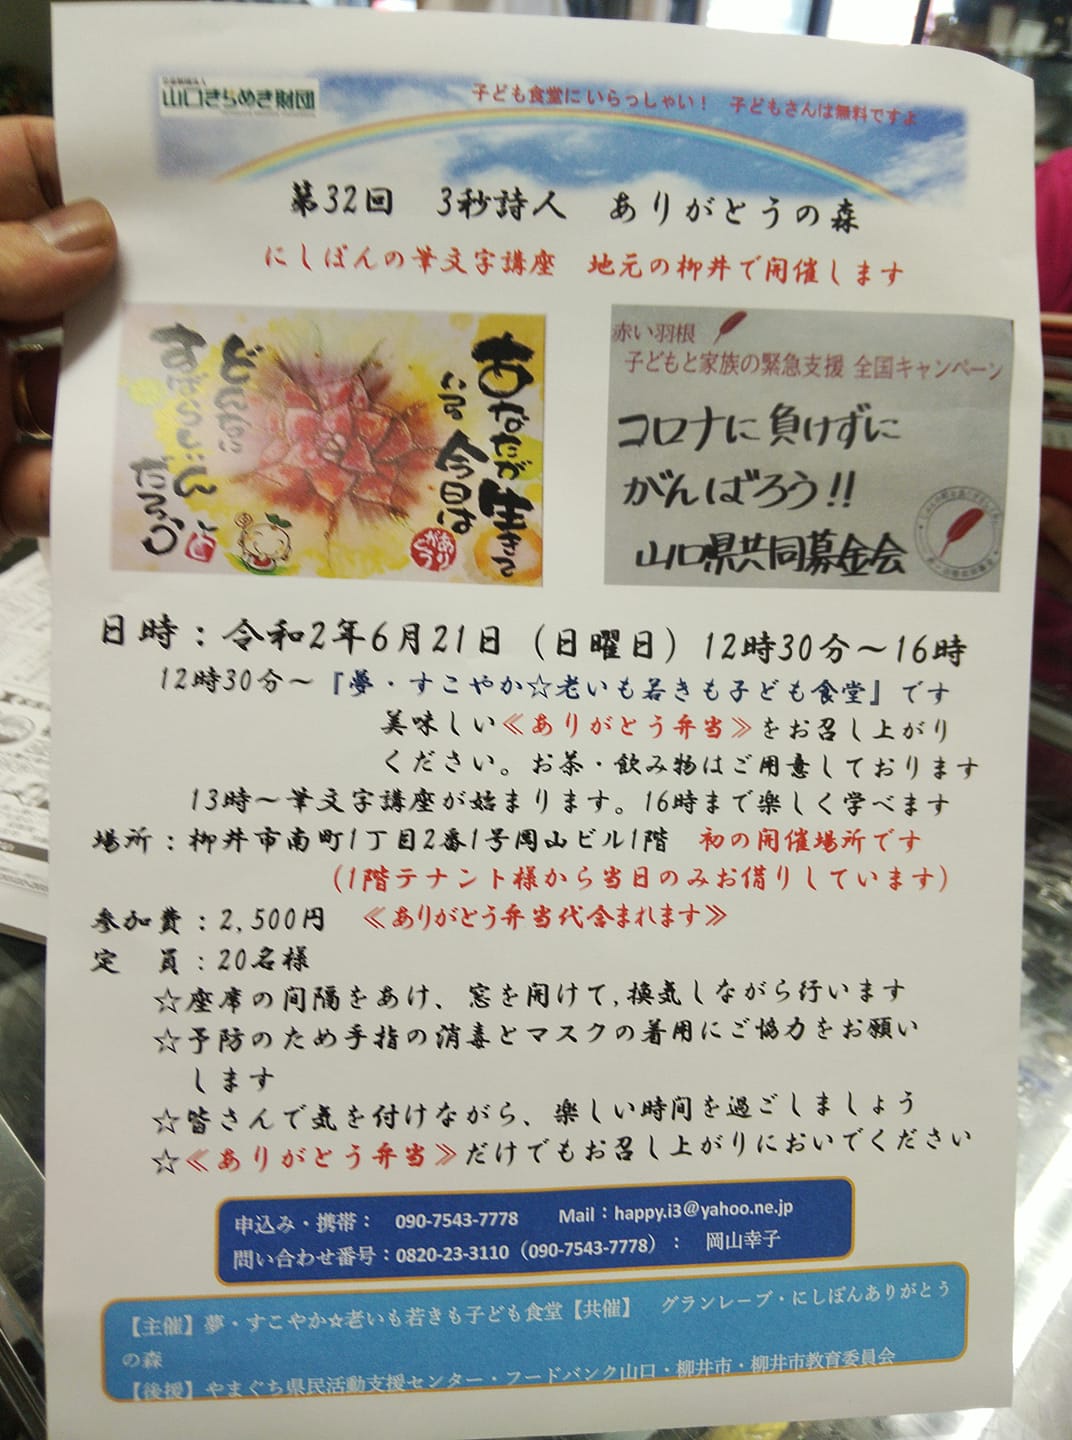 公益財団法人
山口きらめき財団
子ども食堂にいらっしゃい！　子どもさんは無料ですよ
第32回　3秒詩人　ありがとうの森
にしぽんの筆文字講座　地元の柳井で開催します
あなたが生きて
いる今日は
どんなに
すばらしいん
だろう
ありがとう
赤い羽根
子どもと家族の緊急支援 全国キャンペーン
コロナに負けずに
がんばろう!!
山口県共同募金会
日時：令和2年6月21日（日曜日）12時30分～16時
12時30分～『夢・すこやか☆老いも若きも子ども食堂』です
美味しい≪ありがとう弁当≫をお召し上がり
ください。お茶・飲み物はご用意しております
13時～筆文字講座が始まります。16時まで楽しく学べます
場所：柳井市南町1丁目2番1号岡山ビル1階　初の開催場所です
（1階テナント様から当日のみお借りしています）
参加費：2,500円　≪ありがとう弁当代含まれます≫
定　員：20名様
☆座席の間隔をあけ、窓を開けて,換気しながら行います
☆予防のため手指の消毒とマスクの着用にご協力をお願い
します
☆皆さんで気を付けながら、楽しい時間を過ごしましょう
☆≪ありがとう弁当≫だけでもお召し上がりにおいでください
申込み・携帯：　090-7543-7778　　Mail：happy.i3@yahoo.ne.jp
問い合わせ番号：0820-23-3110（090-7543-7778）：　岡山幸子
【主催】夢・すこやか☆老いも若きも子ども食堂【共催】　グランレーブ・にしぽんありがとう
の森
【後援】やまぐち県民活動支援センター・フードバンク山口・柳井市・柳井市教育委員会